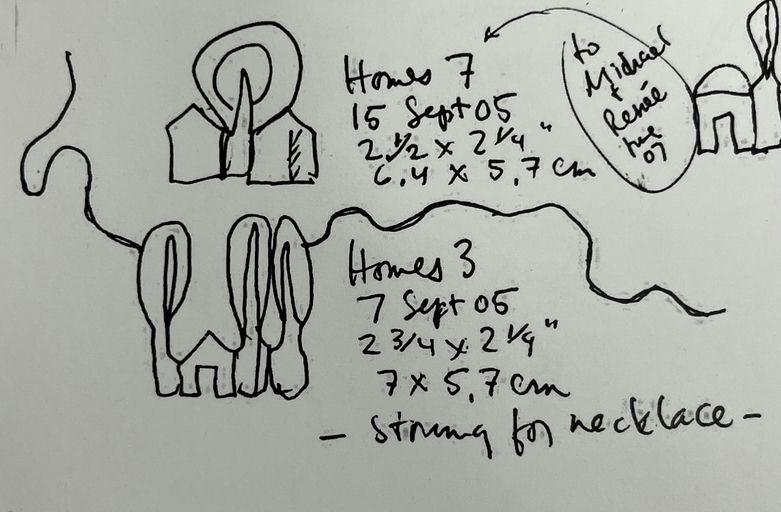 Homes 7
15 Sept 05
2 1/2 x 2 1/4 "
6,4 x 5,7 cm
to
Michael
+
Renée
07
Homes 3
7 Sept 05
2 3/4 x 2 1/4 "
7 x 5,7 cm
- strung for necklace -